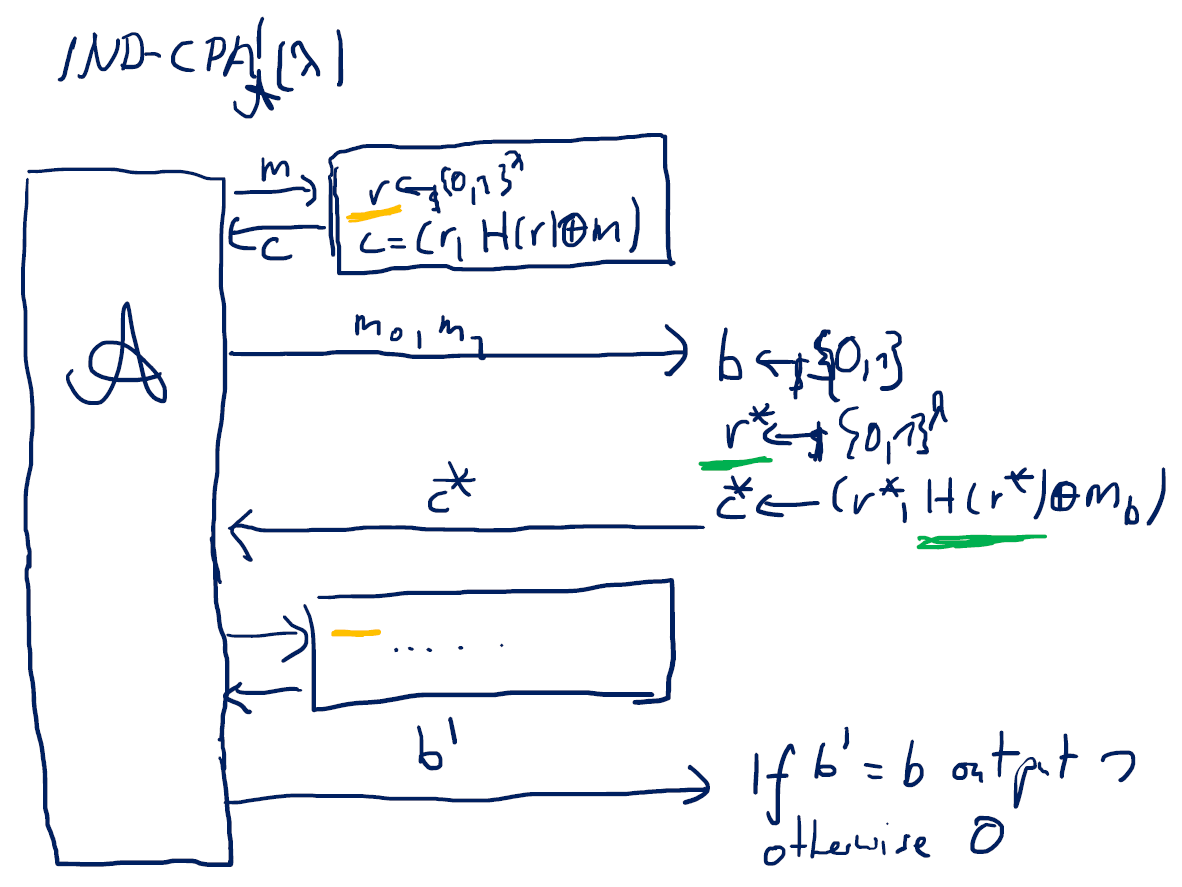 IND-CPA'𝒜(λ)
m
r ←$ {0,1}^λ
c
c = (r, H(r) ⊕ m)
𝒜
m₀, m₁
b ←$ {0,1}
r* ←$ {0,1}^λ
c*
c* ← (r*, H(r*) ⊕ m_b)
..... . .
b'
If b' = b output 1
otherwise 0